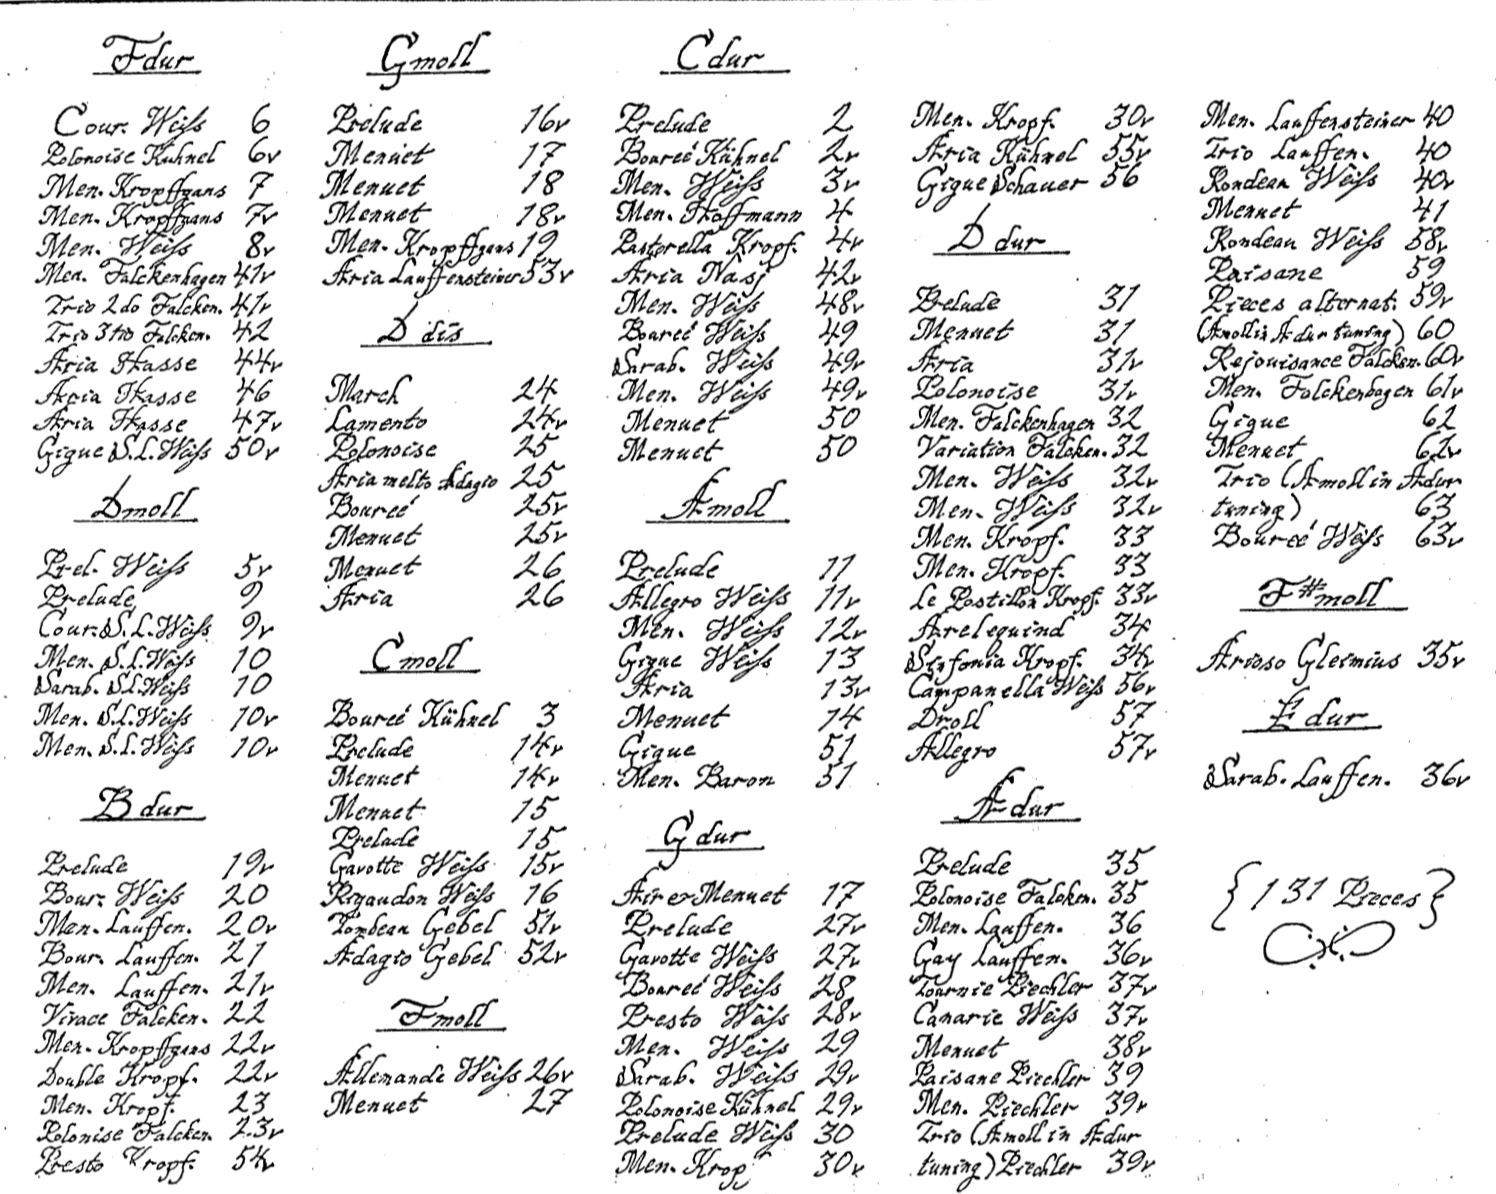 F dur
Cour. Weiss 6
Polonoise Kuhnel 6v
Men. Kropffgans 7
Men. Kropffgans 7v
Men. Weiss 8v
Men. Falckenhagen 41v
Trio 2do Falcken. 41v
Trio 3tio Falcken. 42
Aria Hasse 44v
Aria Hasse 46
Aria Hasse 47v
Gigue S.L. Weiss 50v
Dmoll
Prel. Weiss 5v
Prelude 9
Cour. S.L. Weiss 9v
Men. S.L. Weiss 10
Sarab. S.L. Weiss 10
Men. S.L. Weiss 10v
Men. S.L. Weiss 10v
B dur
Prelude 19v
Bour. Weiss 20
Men. Lauffen. 20v
Bour. Lauffen. 21
Men. Lauffen. 21v
Vivace Falcken. 22
Men. Kropffgans 22v
Double Kropf. 22v
Men. Kropf. 23
Polonise Falcken. 23v
Presto Kropf. 54v
Gmoll
Prelude 16v
Menuet 17
Menuet 18
Menuet 18v
Men. Kropffgans 19
Aria Lauffensteiner 53v
D dis
March 24
Lamento 24v
Polonoise 25
Aria molto Adagio 25
Boureé 25v
Menuet 25v
Menuet 26
Aria 26
Cmoll
Boureé Kühnel 3
Prelude 14v
Menuet 14v
Menuet 15
Prelude 15
Gavotte Weiss 15v
Rigaudon Weiss 16
Tombeau Gebel 51v
Adagio Gebel 52v
Fmoll
Allemande Weiss 26v
Menuet 27
C dur
Prelude 2
Boureé Kühnel 2v
Men. Weiss 3v
Men. Hoffmann 4
Pastorella Kropf. 4v
Aria Nasj 42v
Men. Weiss 48v
Boureé Weiss 49
Sarab. Weiss 49v
Men. Weiss 49v
Menuet 50
Menuet 50
A moll
Prelude 11
Allegro Weiss 11v
Men. Weiss 12v
Gigue Weiss 13
Aria 13v
Menuet 14
Gigue 51
Men. Baron 51
G dur
Air er Menuet 17
Prelude 27v
Gavotte Weiss 27v
Boureé Weiss 28
Presto Weiss 28v
Men. Weiss 29
Sarab. Weiss 29v
Polonoise Kühnel 29v
Prelude Weiss 30
Men. Krop 30v
Men. Kropf. 30v
Aria Kühnel 55v
Gigue Schauer 56
D dur
Prelude 31
Menuet 31
Aria 31v
Polonoise 31v
Men. Falckenhagen 32
Variation Falcken. 32
Men. Weiss 32v
Men. Weiss 32v
Men. Kropf. 33
Men. Kropf. 33
Le Postillon Kropf. 33v
Arelequind 34
Sinfonia Kropf. 34v
Campanella Weiss 56v
Droll 57
Allegro 57v
A dur
Prelude 35
Polonoise Falcken. 35
Men. Lauffen. 36
Gay Lauffen. 36v
Tournie Piechler 37v
Canarie Weiss 37v
Menuet 38v
Paisane Piechler 39
Men. Piechler 39v
Trio (A moll in A dur
tuning) Piechler 39v
Men. Lauffensteiner 40
Trio Lauffen. 40
Rondeau Weiss 40v
Menuet 41
Rondeau Weiss 58v
Paisane 59
Pieces alternat. 59v
(A moll in A dur tuning) 60
Rejouisance Falcken. 60v
Men. Falckenhagen 61v
Gigue 62
Menuet 62v
Trio (A moll in A dur
tuning) 63
Boureé Weiss 63v
F# moll
Arioso Gleimius 35v
E dur
Sarab. Lauffen. 36v
{131 Pieces}